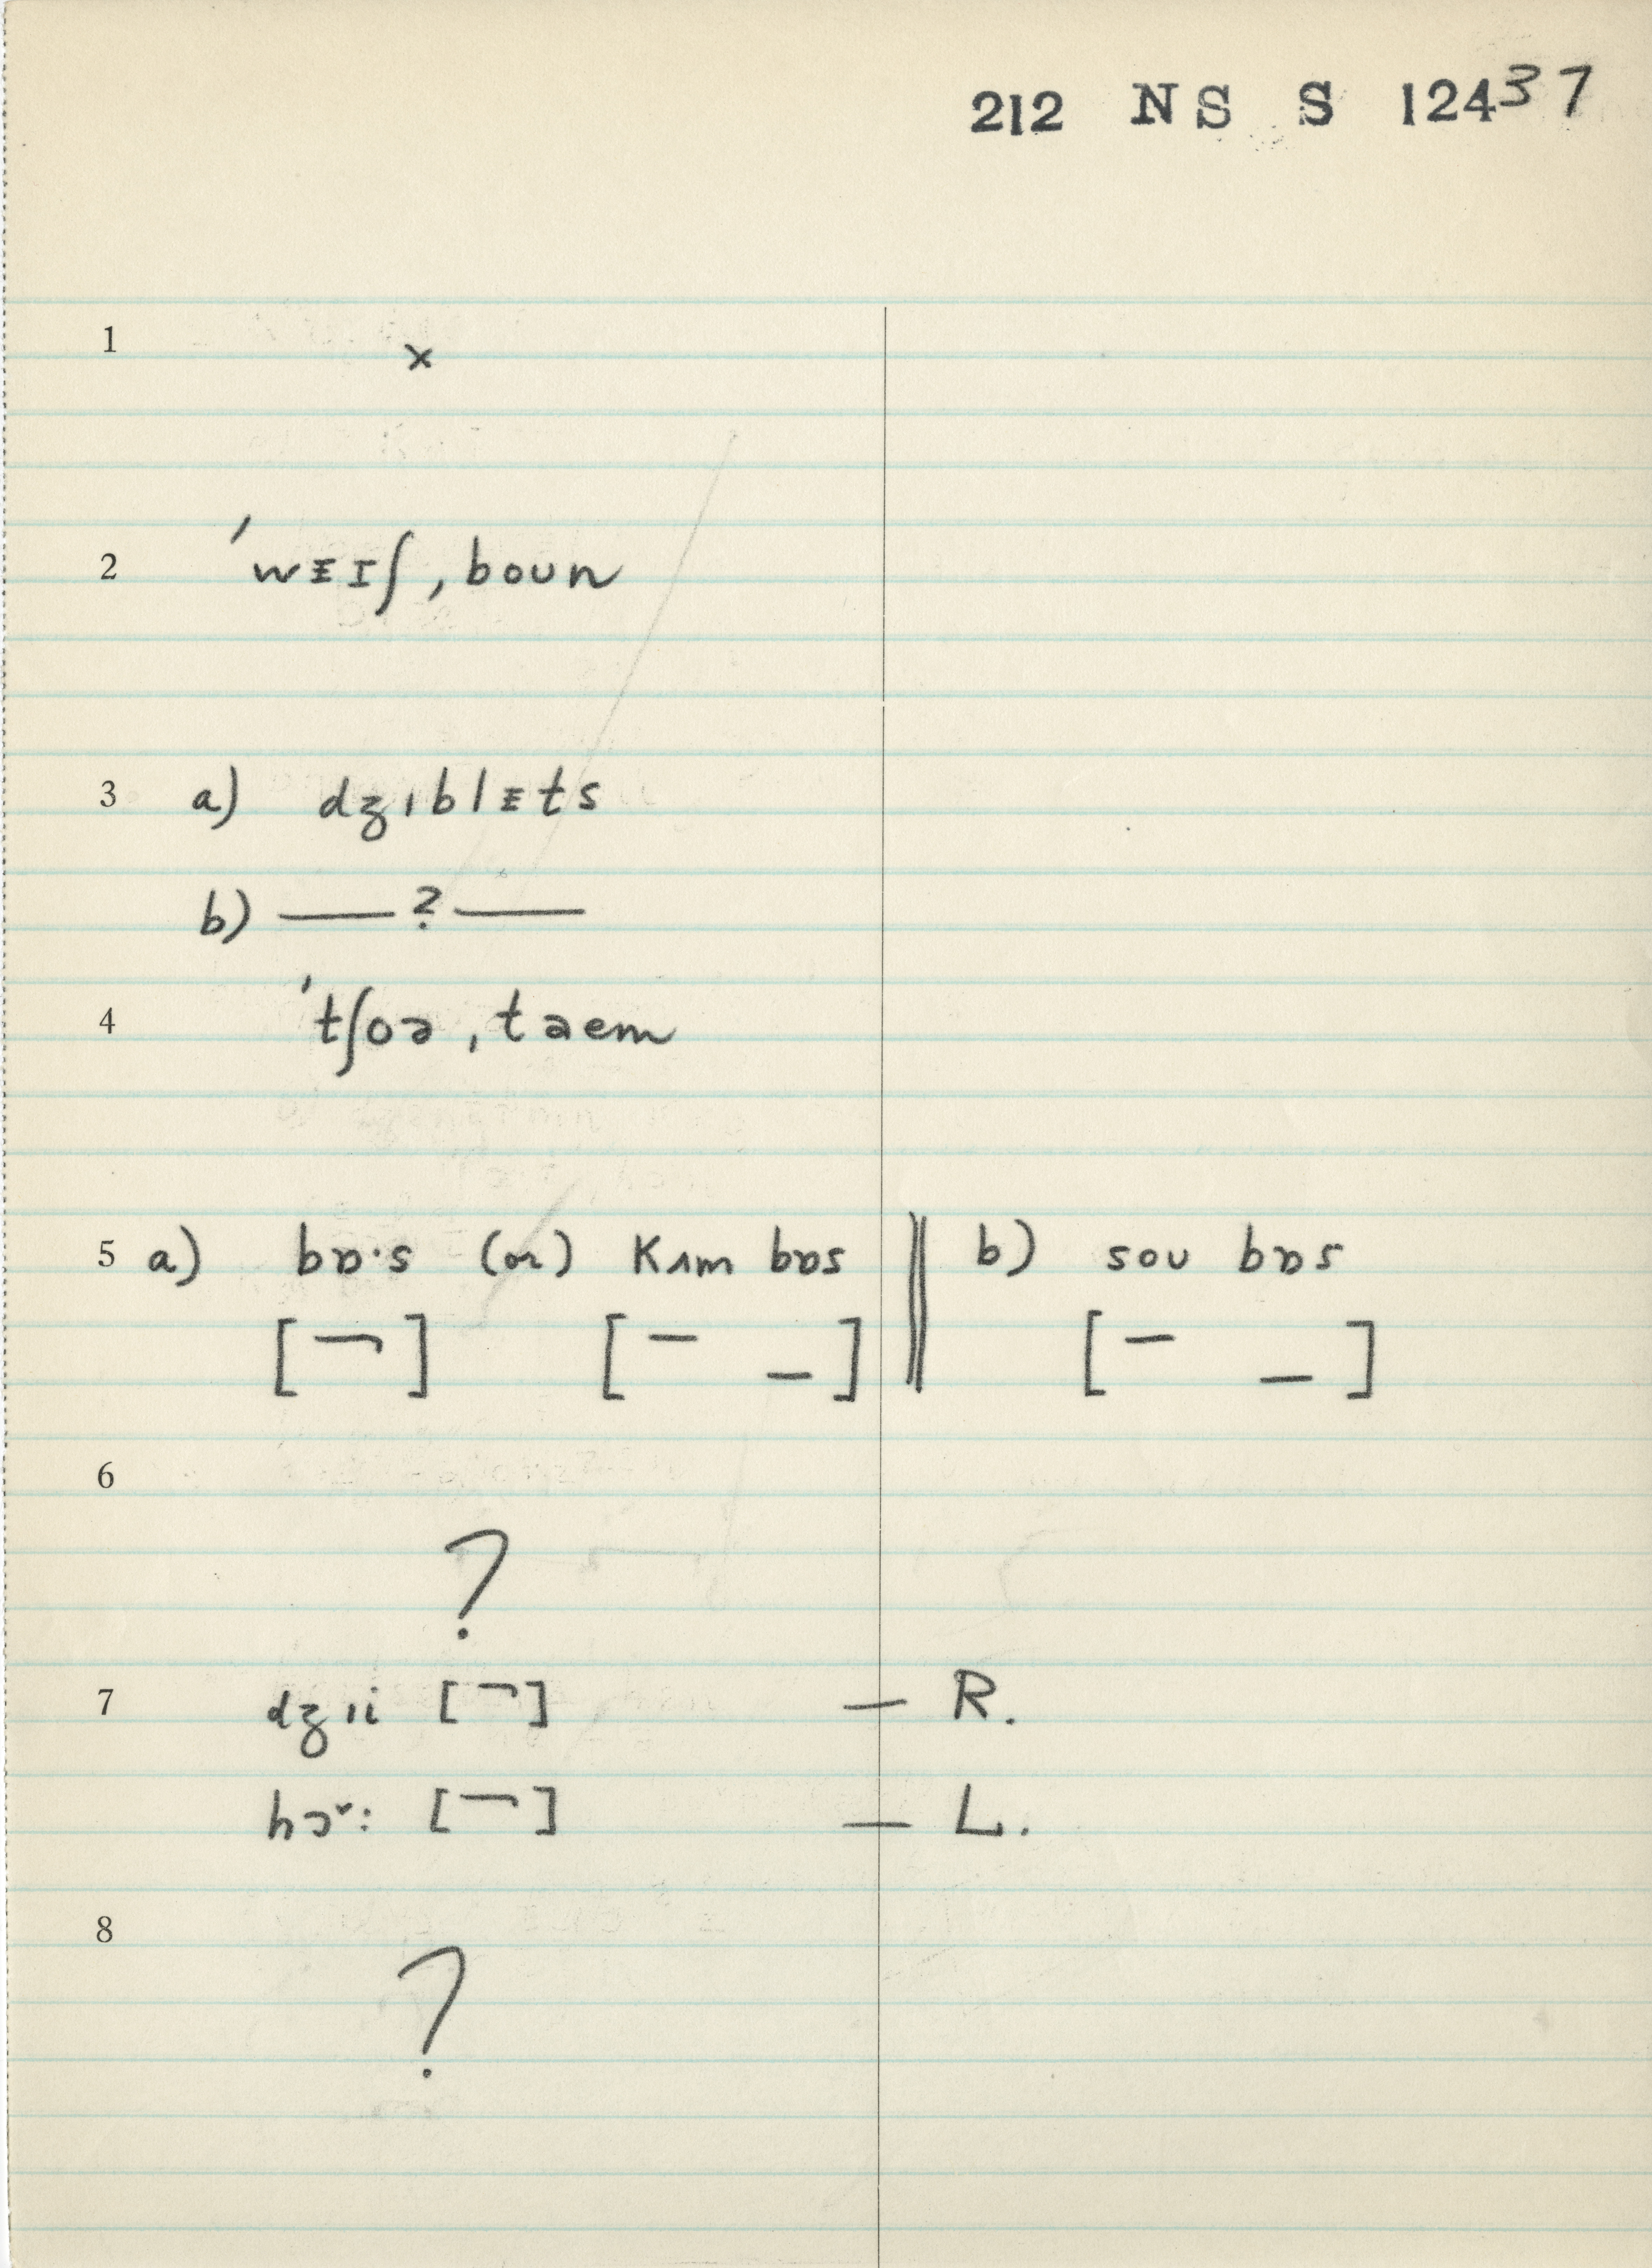 212 NS S 12437
1 x
2 ˈwᴇɪʃ, boun
3 a) dʒɪblᴇts
b) — ? —
4 ˈtʃoə, taem
5 a) bɒ·s (or) Kʌm bɒs || b) sou bɒs
[¬] [– _] [– _]
6
?
7 dʒıi [¬] — R.
hɔˇ: [¬] — L.
8
?